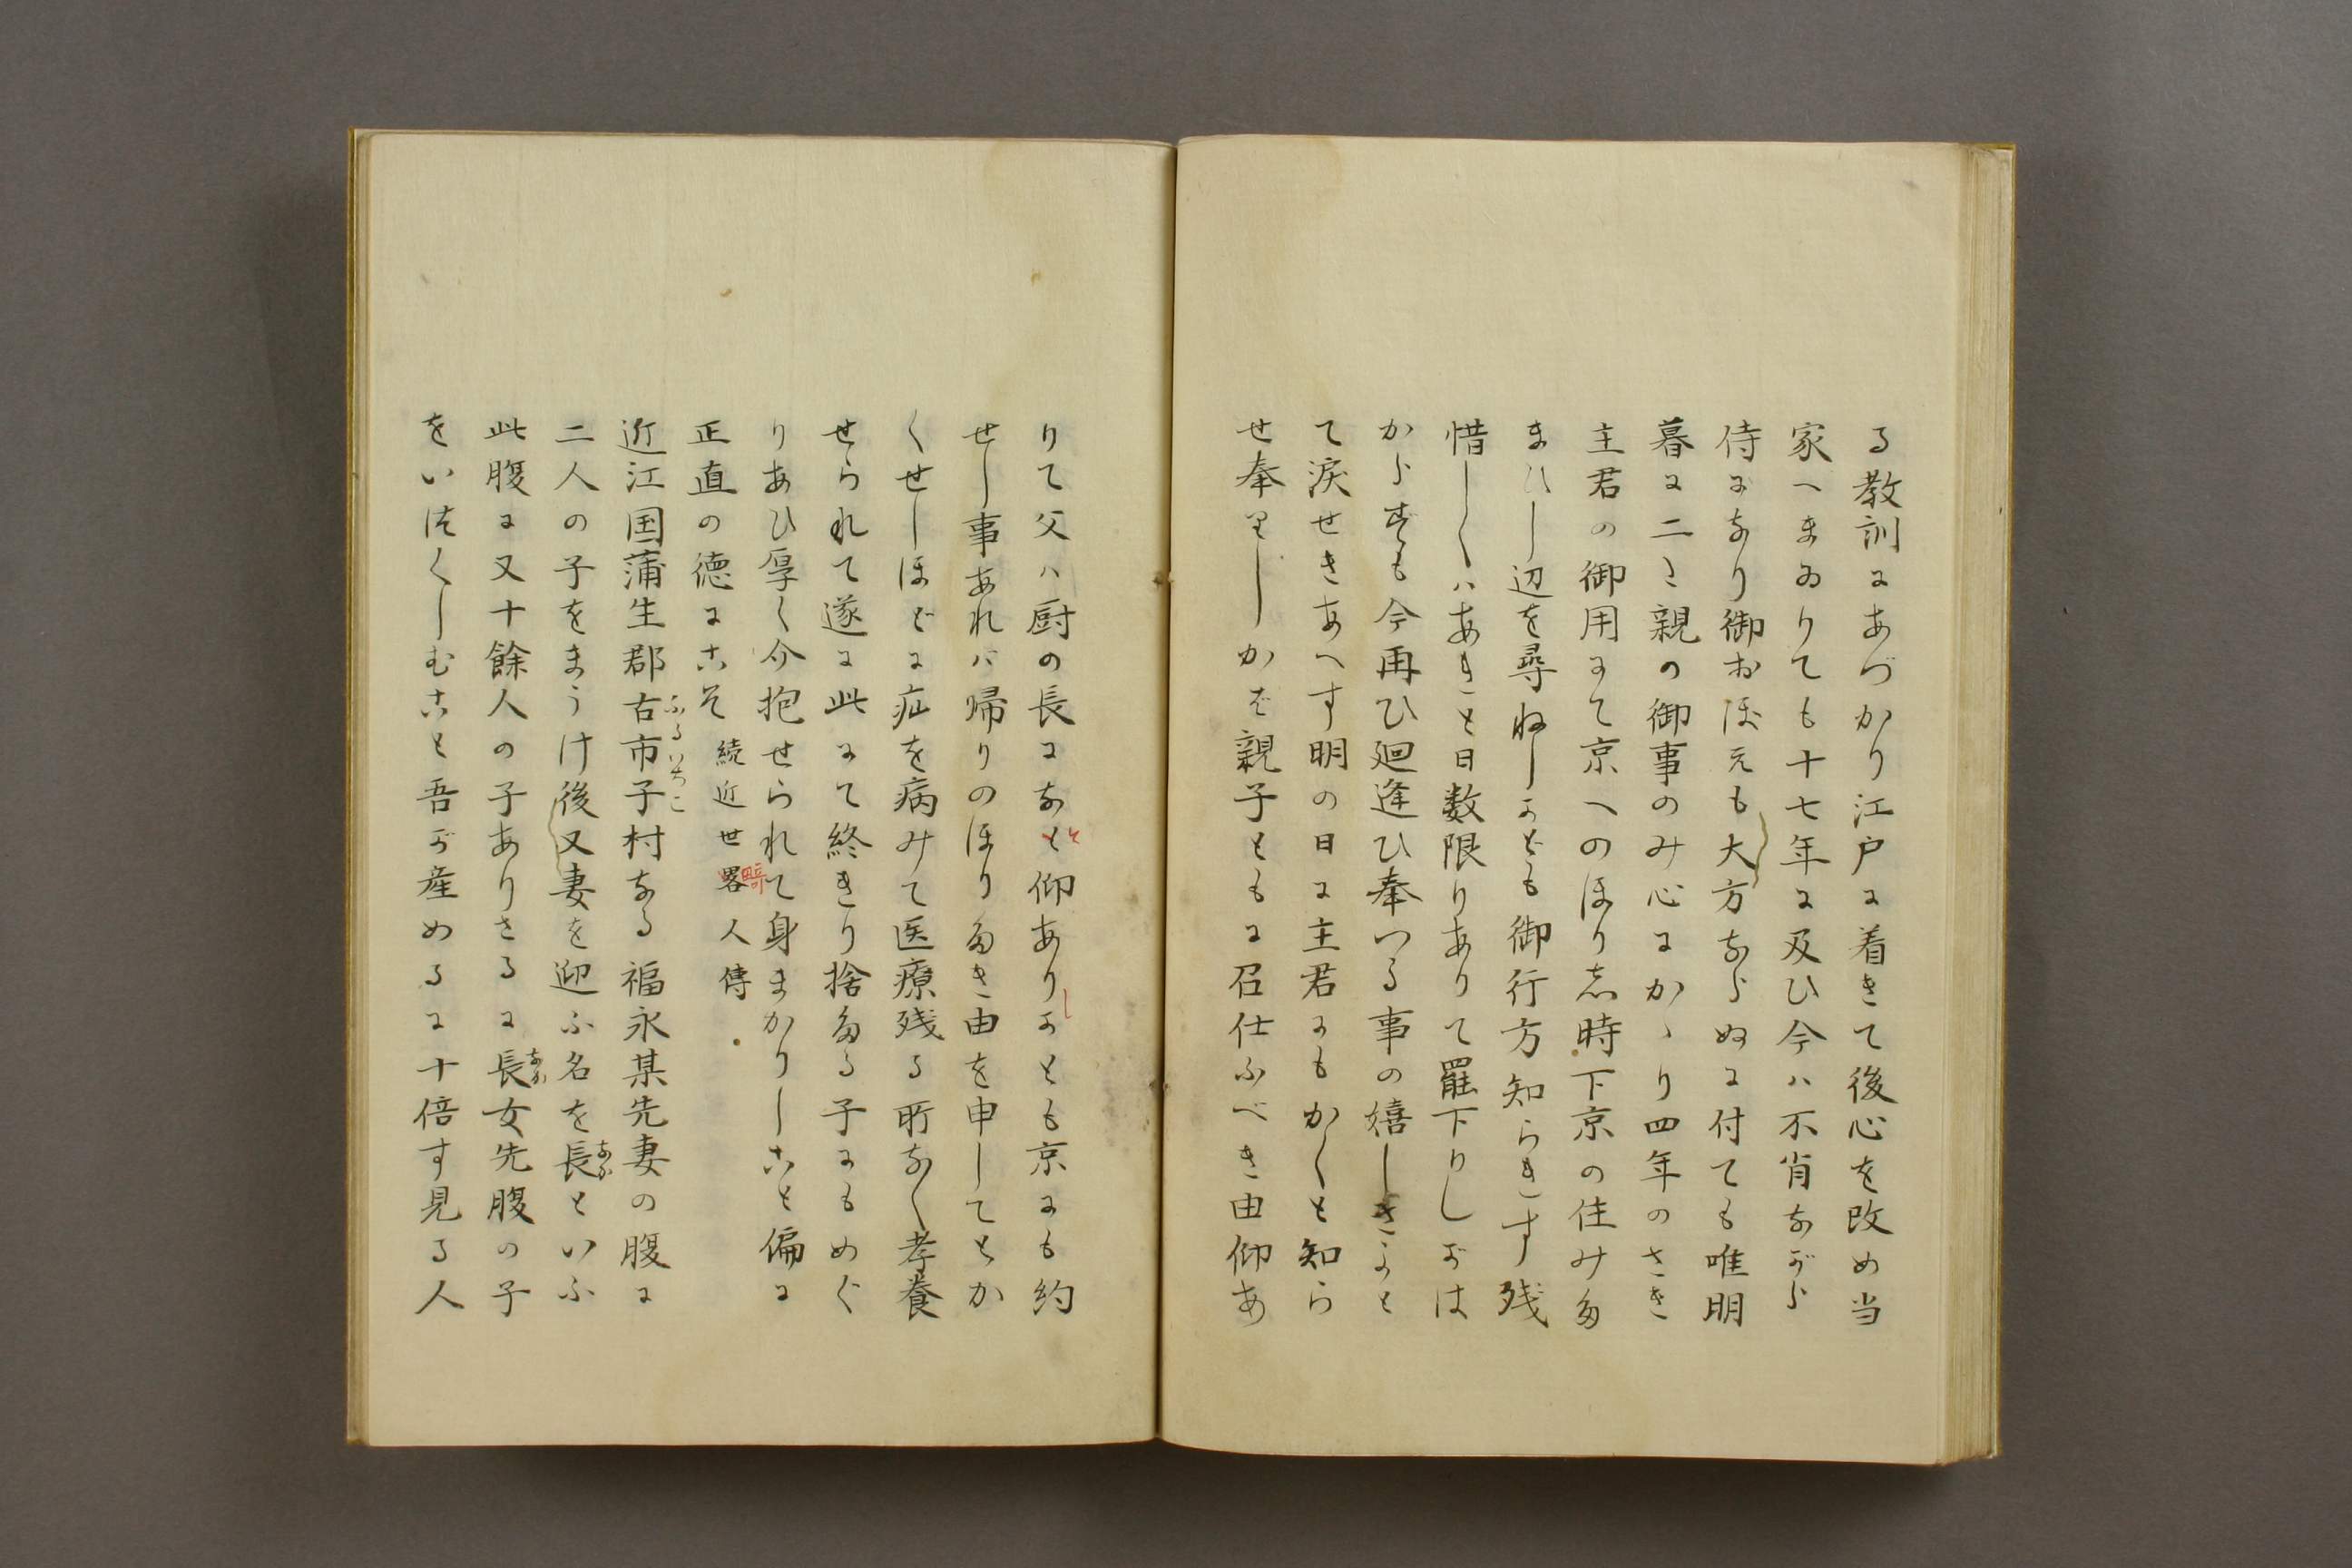 る教訓にあづかり江戸に着きて後心を改め当
家へまゐりても十七年に及ひ今ハ不肖ながら
侍になり御おぼえも大方ならぬに付ても唯明
暮に二た親の御事のみ心にかゝり四年のさき
主君の御用にて京へのほり志時下京の住みた
まひし辺を尋ねしかども御行方知らきす残
惜しくハあきと日数限りありて罷下りしがは
からずも今再ひ廻逢ひ奉つる事の嬉しきよと
て涙せきあへす明の日に主君にもかくと知ら
せ奉里しかば親子ともに召仕ふべき由仰あ
りて父ハ厨の長になと仰ありしかとも京にも約
せし事あれバ帰りのほりたき由を申してとか
くせしほどに疝を病みて医療残る所なく孝養
せられて遂に此にて終きり捨たる子にもめぐ
りあひ厚く介抱せられて身まかりしこと偏に
正直の徳にこそ 続近世畧人傳
近江国蒲生郡古市子村なる福永某先妻の腹に
ふるいちこ
二人の子をまうけ後又妻を迎ふ名を長といふ
なか
此腹に又十餘人の子ありさるに長女先腹の子
なか
をいつくしむこと吾が産めるに十倍す見る人